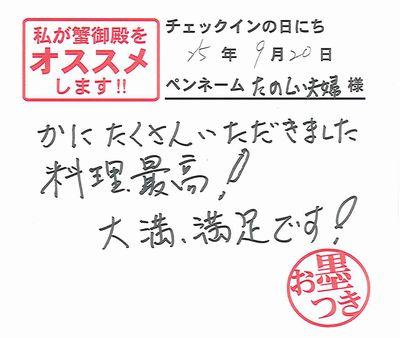 私が蟹御殿を
オススメ
します!!
チェックインの日にち
25年 9月20日
ペンネーム たのしい夫婦 様
かに たくさんいただきました
料理、最高!
大満、満足です!
お墨つき